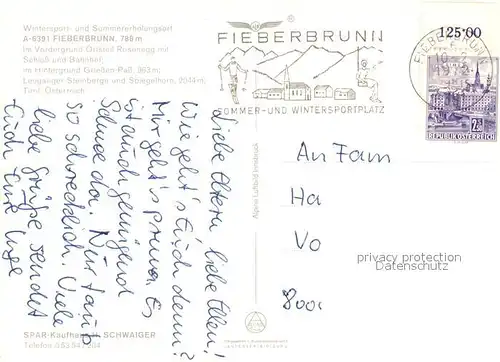 Wintersport- und Sommererholungsort
A-6391 FIEBERBRUNN, 788 m
Im Vordergrund Ortsteil Rosenegg mit
Schloß und Bahnhof;
im Hintergrund Grießen-Paß, 963 m;
Leoganger Steinberge und Spiegelhorn, 2044 m,
Tirol, Österreich
FIEBERBRUNN
SOMMER-UND WINTERSPORTPLATZ
FIEBERBRUNN
125·00
REPUBLIK ÖSTERREICH
Liebe Eltern, liebe Ellen!
Wie geht's Euch denn?
Mir geht's prima. Es
ist auch genügend
Schnee da. Nur
so schrecklich. Viele
liebe Grüße sendet
Euch Eure Inge
An Fam
Ha
Vo
800
privacy protection
Datenschutz
Alpine Luftbild Innsbruck
SPAR-Kaufhaus H. SCHWAIGER
Telefon